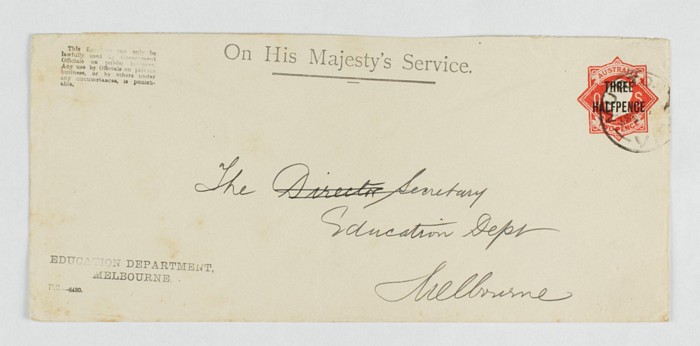 This En may only be
lawfully used by Government
Officials on public business.
Any use by Officials on private
business, or by others under
any circumstances, is punish-
able.
On His Majesty's Service.
AUSTRALIA
THREE
HALFPENCE
O S
TWO PENCE
The Director Secretary
Education Dept
Melbourne
EDUCATION DEPARTMENT,
MELBOURNE.
—6430.